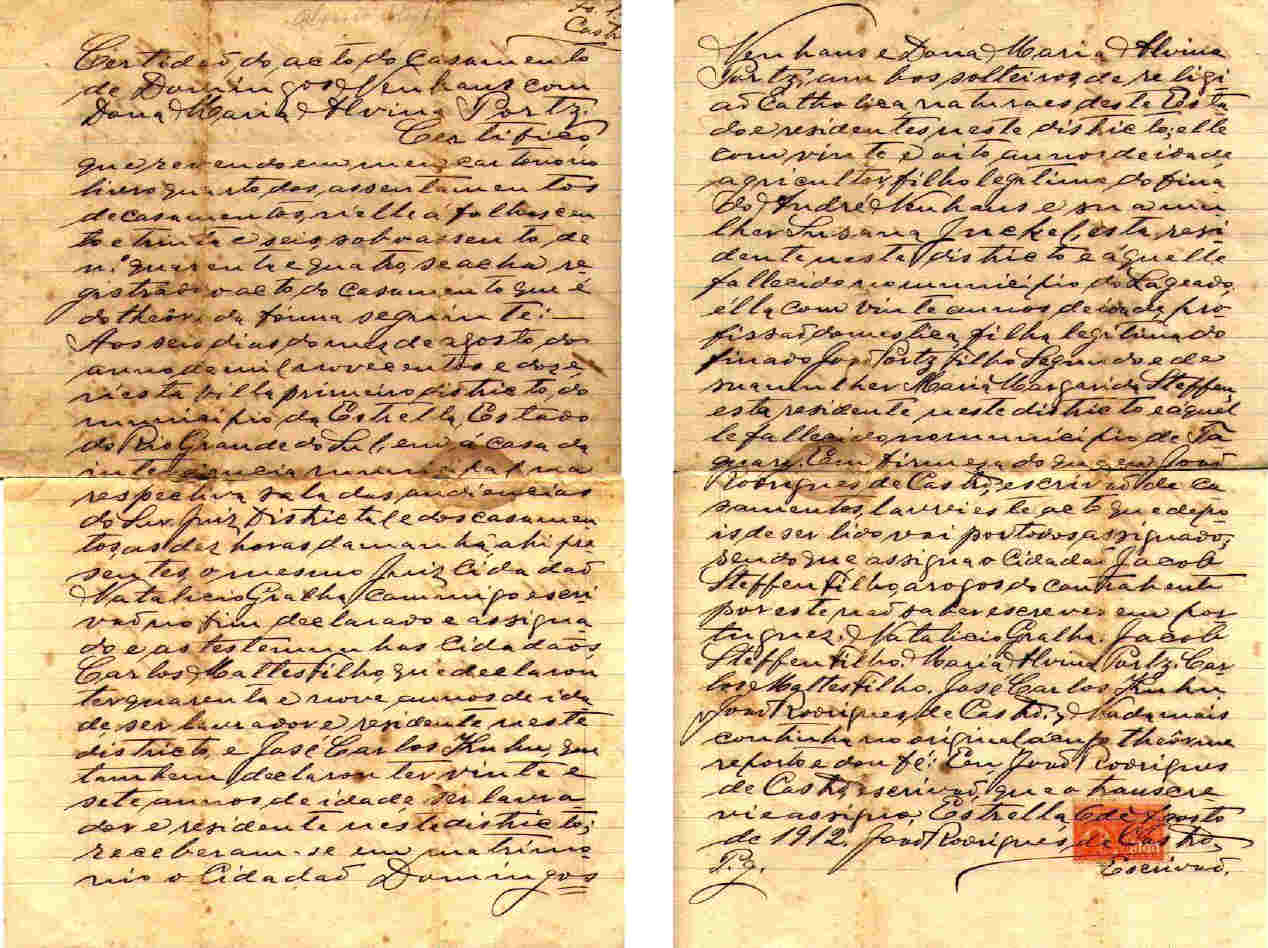 Certidão do acto do Casamento
de Domingos Nenhaus com
Dona Maria Alvina Portz.
Certifico
que revendo em meu cartorio o
livro quarto dos assentamentos
de casamentos, n'elle á folhas cen
to e trinta e seis, sob o assento, de
n.º quarenta e quatro, se acha re
gistrado o acto do casamento que é
do theôr e da forma seguinte:
Aos seis dias do mez de agosto do
anno de mil novecentos e doze
n'esta villa primeiro districto, do
municipio da Estrella, Estado
do Rio Grande do Sul, em a casa da
intendencia municipal na
respectiva sala das audiencias
do Snr. Juiz Districtal e dos casamen
tos, as dez horas da manhã, ahi pre
sentes, o mesmo Juiz Cidadaõ
Natalicio Gralha, commigo escri
vão no fim declarado e assigna
do e as testemunhas Cidadaõs
Carlos Maltes filho, que declarou
ter quarenta e nove annos de ida
de ser lavrador e residente n'este
districto, e José Carlos Kuhn, que
tambem declarou ter vinte e
sete annos, de idade ser lavra
dor e residente n'este districto;
receberam-se em matrimo
nio o Cidadaõ Domingos
Nenhaus e Dona Maria Alvina
Portz, ambos solteiros, de religi
aõ Catholica, naturaes deste Esta
do e residentes n'este districto; elle
com vinte e oito annos de idade
agricultor, filho legitimo do fina
do André Nenhaus e sua mu
lher Susana Juckel, esta resi
dente neste districto e áquelle
fallecido no municipio do Lageado,
élla com vinte annos de idade, pro
fissaõ domestica, filha legitima do
finado Joaõ Portz filho Segundo e de
sua mulher Maria Margarida Steffen
esta residente neste districto e aquel
le fallecido no municipio de Ta
quary. Em firmeza do que eu Joaõ
Rodrigues de Castro, escrivaõ de ca
samentos, lavrei este acto que depo
is de ser lido vai por todos assignado,
sendo que assigna o Cidadaõ Jacob
Steffen filho, a rogo do contrahente
por este naõ saber escrever em por
tuguez. Natalicio Gralha. Jacob
Steffen filho. Maria Alvina Portz. Car
los Maltes filho. José Carlos Kuhn.
Joaõ Rodrigues de Castro. Nada mais
continha no original á cujo theôr me
reporto e dou fé: Eu Joaõ Rodrigues
de Castro, escrivaõ, que a transcre
vi e assigno. Estrella 6 de Agosto
de 1912. Joaõ Rodrigues de Castro,
P. g.
Escrivaõ.